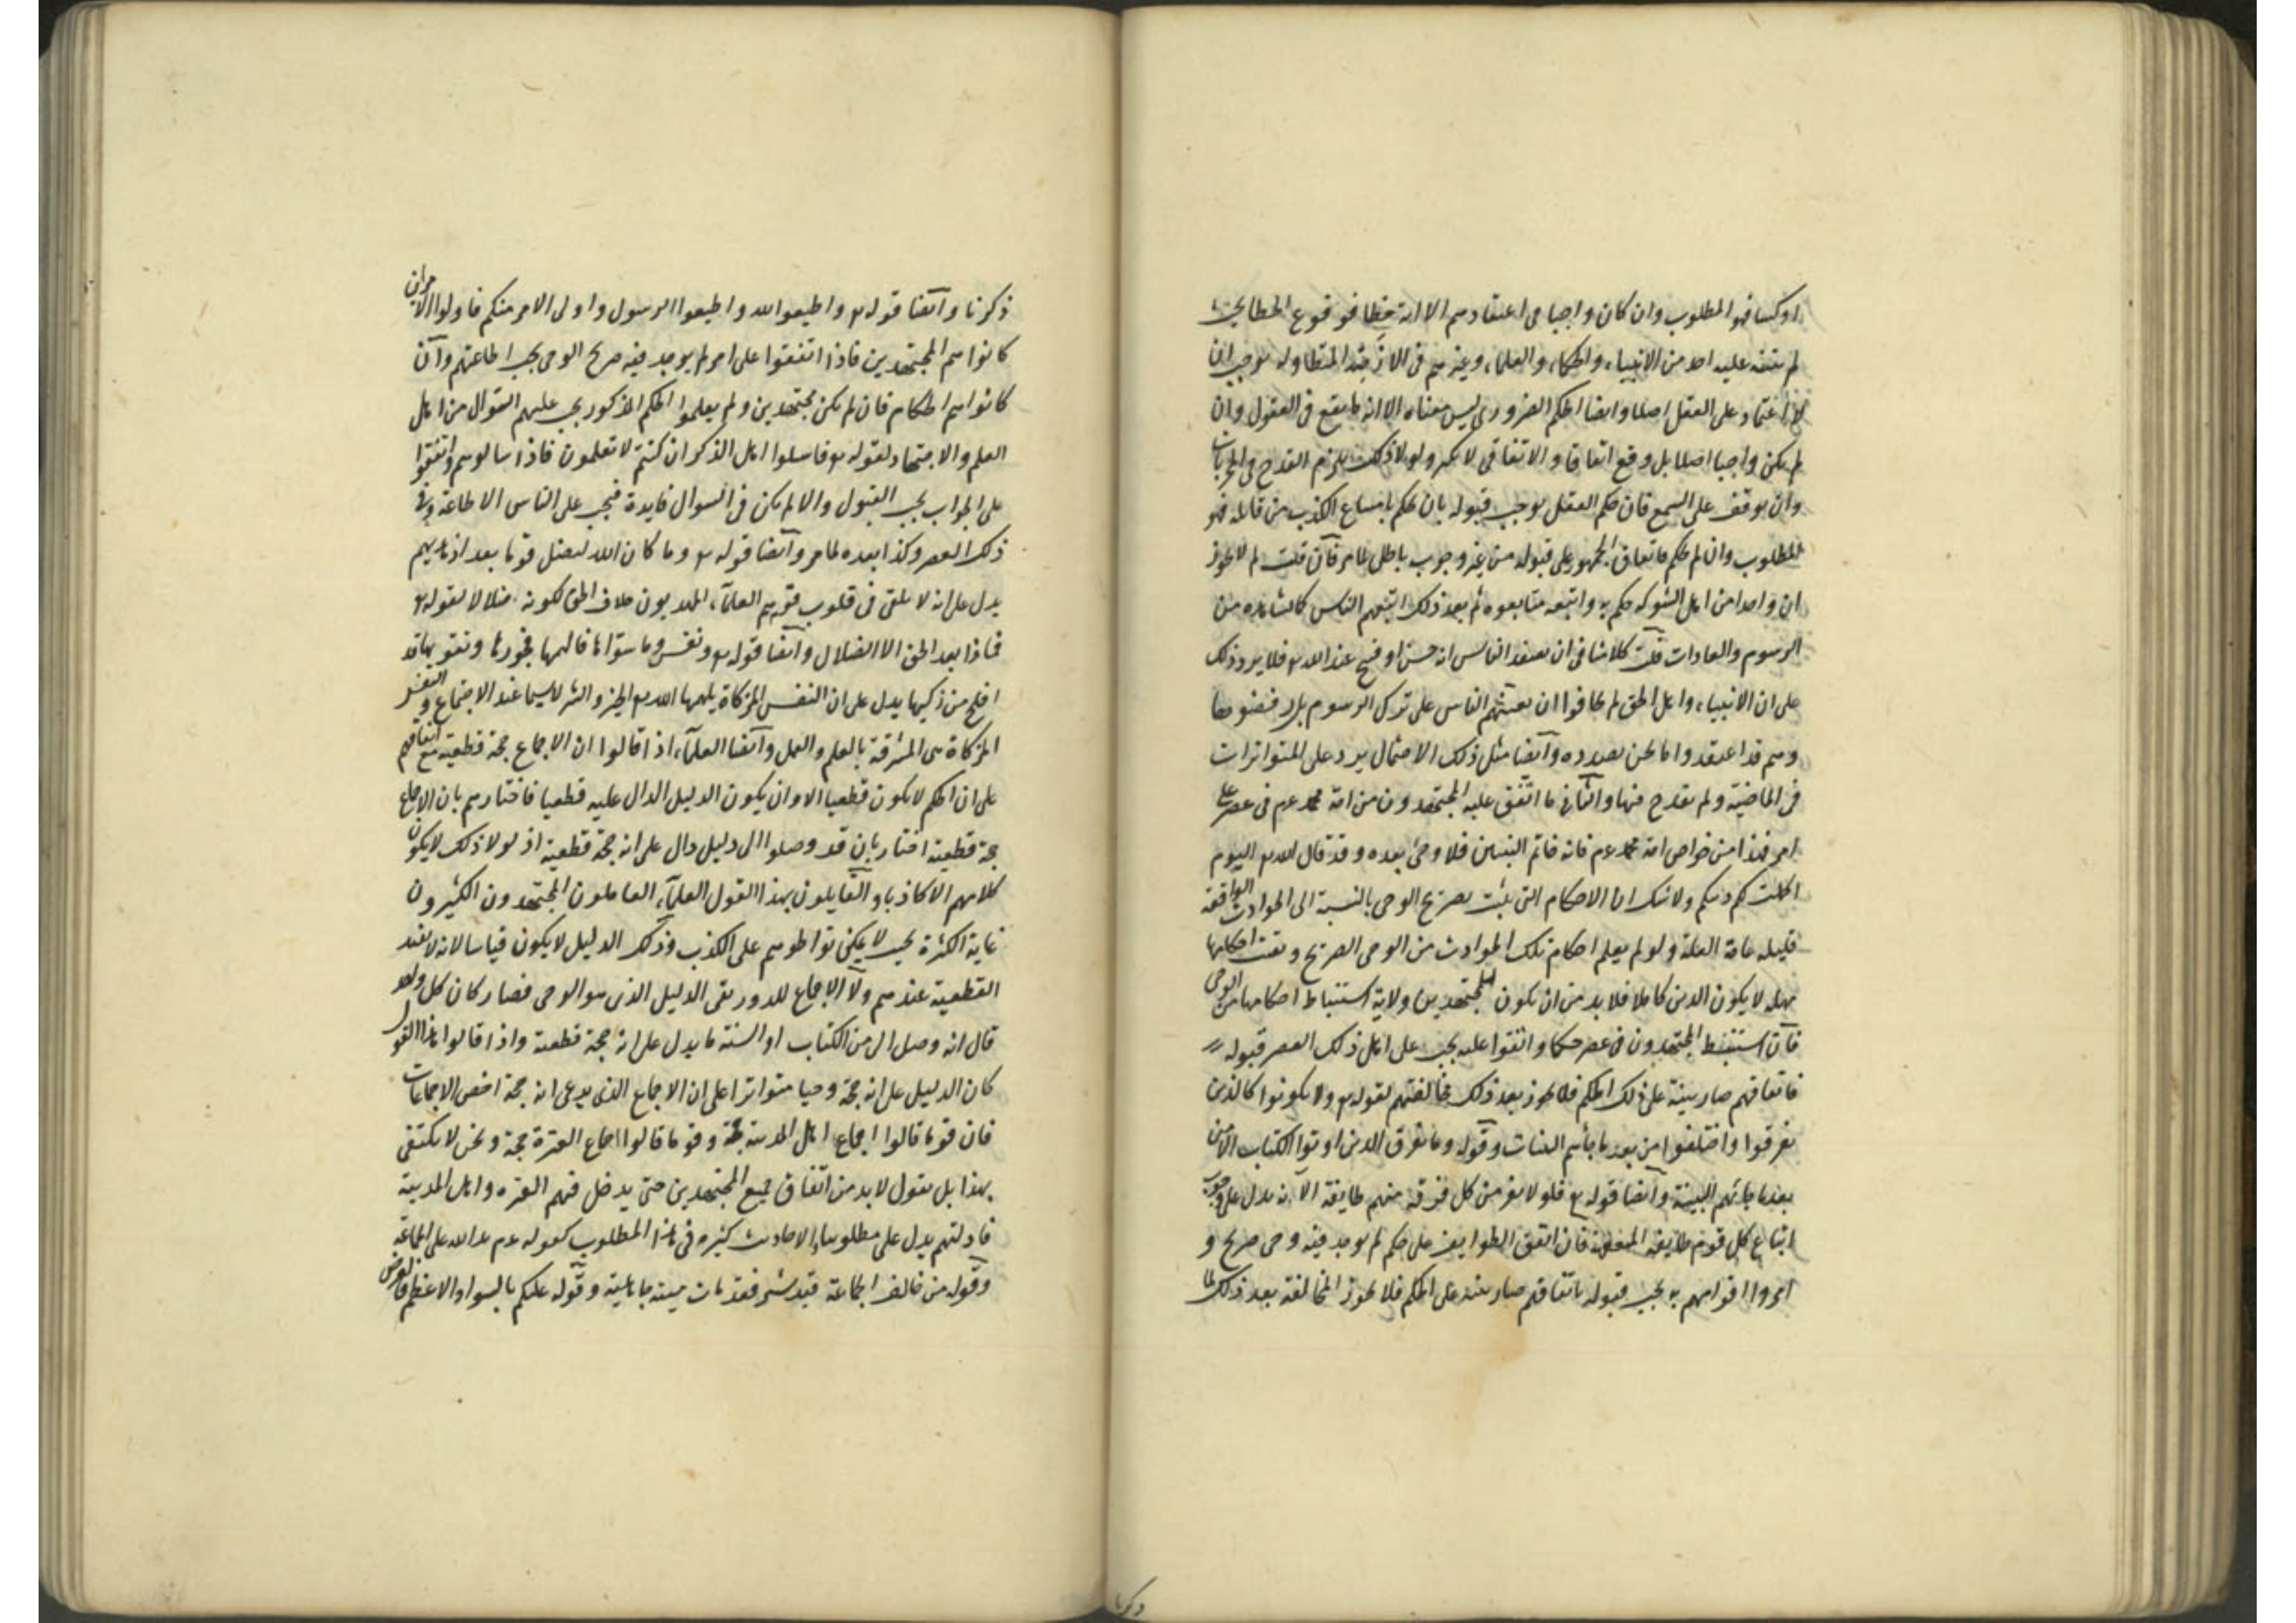 او كسا فهو المطلوب وان كان واجبا فى اعتقادهم الا انه خطا فوقوع الخطا بحيث
لم يتنبه عليه احد من الانبياء والحكماء والعلماء وغيرهم فى الازمنة المتطاوله يوجب ان
لا اعتماد على العقل اصلا وايضا الحكم الضرورى ليس معناه الا انه ما يقع فى العقول وان
لم يكن واجبا اصلا بل وقع اتفاقا والاتفاقى لا يكثر ولولا ذلك يلزم القدح فى المجربات
وان توقف على السمع فان حكم العقل بوجب قبوله بان يحكم بامتناع الكذب من قائله فهو
المطلوب وان لم يحكم فاتفاق الجمهور على قبوله من غير وجوب باطل لما مر فان قلت لم لا يجوز
ان واحدا من اهل الشوكه حكم به واتبعه متابعوه ثم بعد ذلك اتبعهم الناس كما نشاهده من
الرسوم والعادات قلت كلامنا فى ان يعتقد الناس انه حسن او قبيح عند الله تع فلا يرد ذلك
على ان الانبياء واهل الحق لم يخافوا ان يعيبهم الناس على ترك الرسوم بل رفضوها
وهم قد اعتقدوا ما نحن بصدده وايضا مثل ذلك الاحتمال يرد على المتواترات
فى الماضية ولم يقدح فيها والثانى ما اتفق عليه المجتهدون من امة محمد عم فى عصر على
امر فهذا من خواص امة محمد عم فانه خاتم النبيين فلا وحى بعده وقد قال الله تع اليوم
اكملت لكم دينكم ولا شك ان الاحكام التى تثبت بصريح الوحى بالنسبة الى الحوادث الواقعة
قليله غاية القلة ولو لم يعلم احكام تلك الحوادث من الوحى الصريح وبقيت احكامها
مهمله لا يكون الدين كاملا فلا بد من ان يكون للمجتهدين ولاية استنباط احكامها من الوحى
فان استنبط المجتهدون فى عصر حكما واتفقوا عليه يجب على اهل ذلك العصر قبوله
فاتفاقهم صار بينة على ذلك الحكم فلا يجوز بعد ذلك مخالفتهم لقوله تع ولا تكونوا كالذين
تفرقوا واختلفوا من بعد ما جاءهم البينات وقوله وما تفرق الذين اوتوا الكتاب الا من
بعد ما جاءتهم البينة وايضا قوله تع فلولا نفر من كل فرقة منهم طايفة الآية يدل على وجوب
اتباع كل قوم طايفته المتفقهة فان اتفق الطوايف على حكم لم يوجد فيه وحى صريح و
امروا اقوامهم به يجب قبوله باتفاقهم صار بينة على الحكم فلا يجوز المخالفة بعد ذلك لما
ذكرنا
ذكرنا وايضا قوله تع واطيعوا الله واطيعوا الرسول واولى الامر منكم فاولوا الامر ان
كانوا هم المجتهدين فاذا اتفقوا على امر لم يوجد فيه صريح الوحى يجب اطاعتهم وان
كانوا هم الحكام فان لم يكن مجتهدين ولم يعلموا الحكم المذكور يجب عليهم السؤال من اهل
العلم والاجتهاد لقوله تع فاسلوا اهل الذكر ان كنتم لا تعلمون فاذا سالوهم واتفقوا
على الجواب يجب القبول والا لم يكن فى السوال فايدة فيجب على الناس الاطاعة فى
ذلك العصر وكذا بعده لما مر وايضا قوله تع وما كان الله ليضل قوما بعد اذ هديهم
يدل على انه لا يلقى فى قلوب قوم هم العلماء المهديون خلاف الحق لكونه ضلالا لقوله تع
فماذا بعد الحق الا الضلال وايضا قوله تع ونفس وما سواها فالهمها فجورها وتقويها قد
افلح من زكيها يدل على ان النفس المزكاة يلهمها الله تع الخير والشر لا سيما عند الاجتماع والنفس
المزكاة هى المشرفة بالعلم والعمل وايضا العلماء اذا قالوا ان الاجماع حجة قطعية مع اتفاقهم
على ان الحكم لا يكون قطعيا الا وان يكون الدليل الدال عليه قطعيا فاخبارهم بان الاجماع
حجة قطعية اخبار بان قد وصلوا الى دليل دال على انه حجة قطعية اذ لولا ذلك لا يكون
كلامهم الا كاذبا والقايلون بهذا القول العلماء العاملون المجتهدون الكثيرون
غاية الكثرة بحيث لا يمكن تواطؤهم على الكذب وذلك الدليل لا يكون قياسا لانه لا يفيد
القطعية عندهم ولا الاجماع للدور بقى الدليل الذى هو الوحى فصار كان كل واحد
قال انه وصل الى من الكتاب او السنة ما يدل على انه حجة قطعية واذا قالوا هذا القول
كان الدليل على انه حجة وحيا متواترا على ان الاجماع الذى يدعى انه حجة اخص الاجماعات
فان قوما قالوا اجماع اهل المدينة حجة وقوما قالوا اجماع العترة حجة ونحن لا نكتفى
بهذا بل نقول لا بد من اتفاق جميع المجتهدين حتى يدخل فيهم العترة واهل المدينة
فادلتهم يدل على مطلوبنا والاحاديث كثيره فى هذا المطلوب كقوله عم يد الله على الجماعة
وقوله من خالف الجماعة قيد شبر فقد مات ميتة جاهلية وقوله عليكم بالسواد الاعظم فالغرض